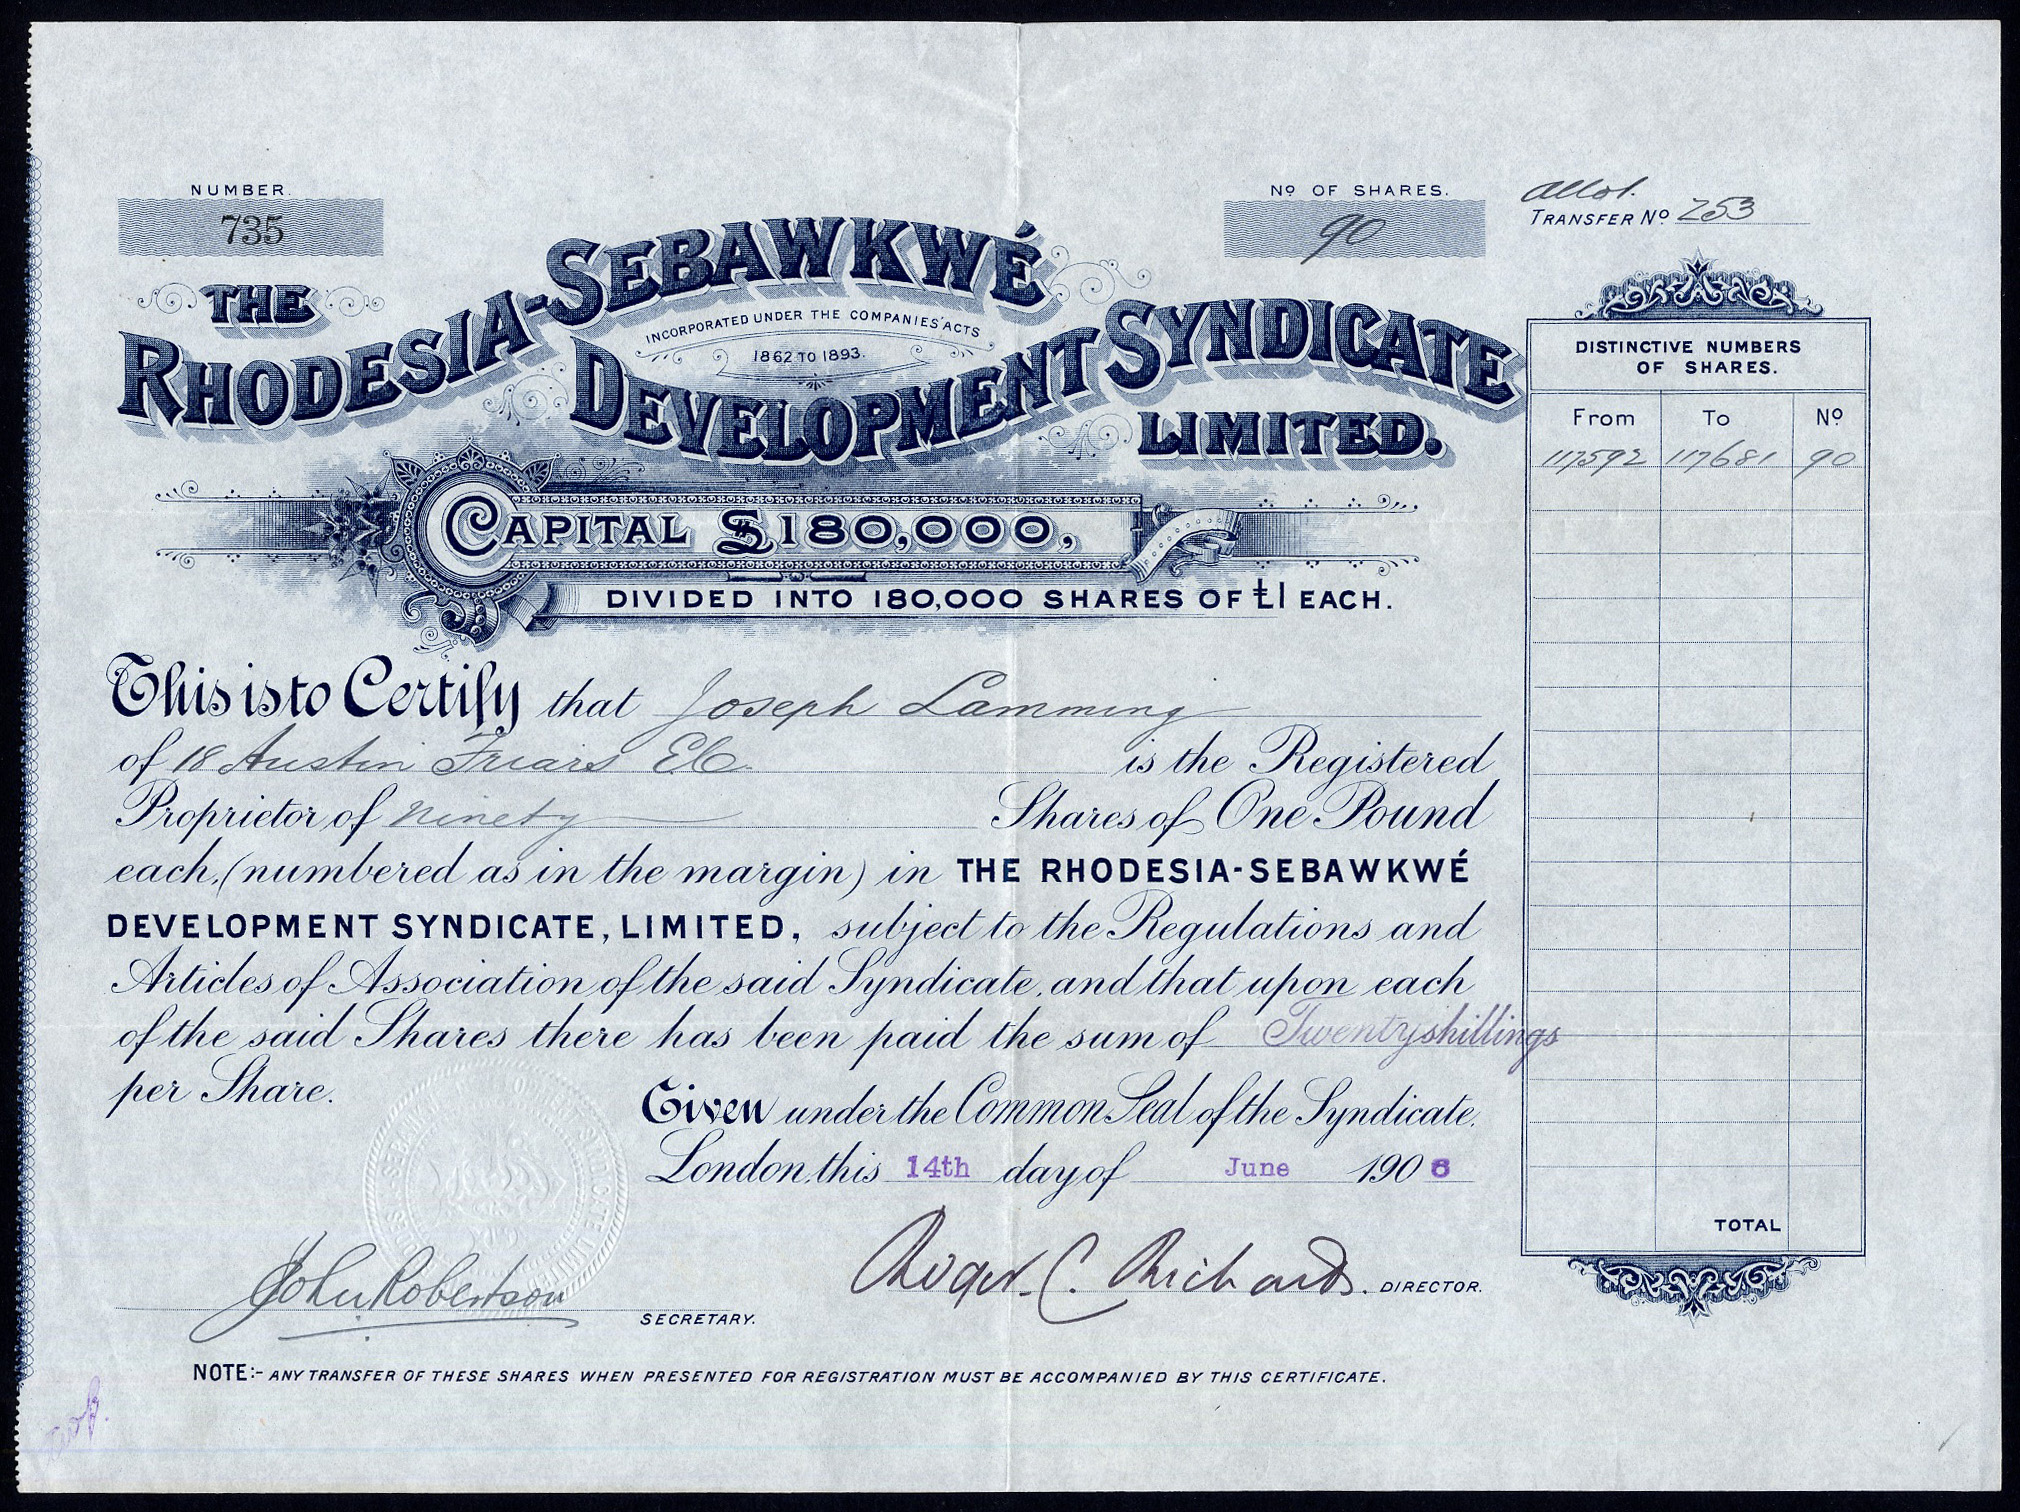 NUMBER.
735
Nº OF SHARES.
90
Allot.
TRANSFER Nº 253
THE
RHODESIA-SEBAWKWÉ
INCORPORATED UNDER THE COMPANIES' ACTS
1862 TO 1893.
DEVELOPMENT SYNDICATE
LIMITED.
CAPITAL £180,000,
DIVIDED INTO 180,000 SHARES OF £1 EACH.
DISTINCTIVE NUMBERS
OF SHARES.
From To Nº
117592 117681 90
TOTAL
This is to Certify that Joseph Lamming
of 18 Austin Friars E.C.
is the Registered
Proprietor of Ninety Shares of One Pound
each, (numbered as in the margin) in THE RHODESIA-SEBAWKWÉ
DEVELOPMENT SYNDICATE, LIMITED, subject to the Regulations and
Articles of Association of the said Syndicate, and that upon each
of the said Shares there has been paid the sum of Twenty shillings
per Share.
Given under the Common Seal of the Syndicate.
London, this 14th day of June 1906
John Robertson
SECRETARY.
Roger C. Richards. DIRECTOR.
NOTE:- ANY TRANSFER OF THESE SHARES WHEN PRESENTED FOR REGISTRATION MUST BE ACCOMPANIED BY THIS CERTIFICATE.